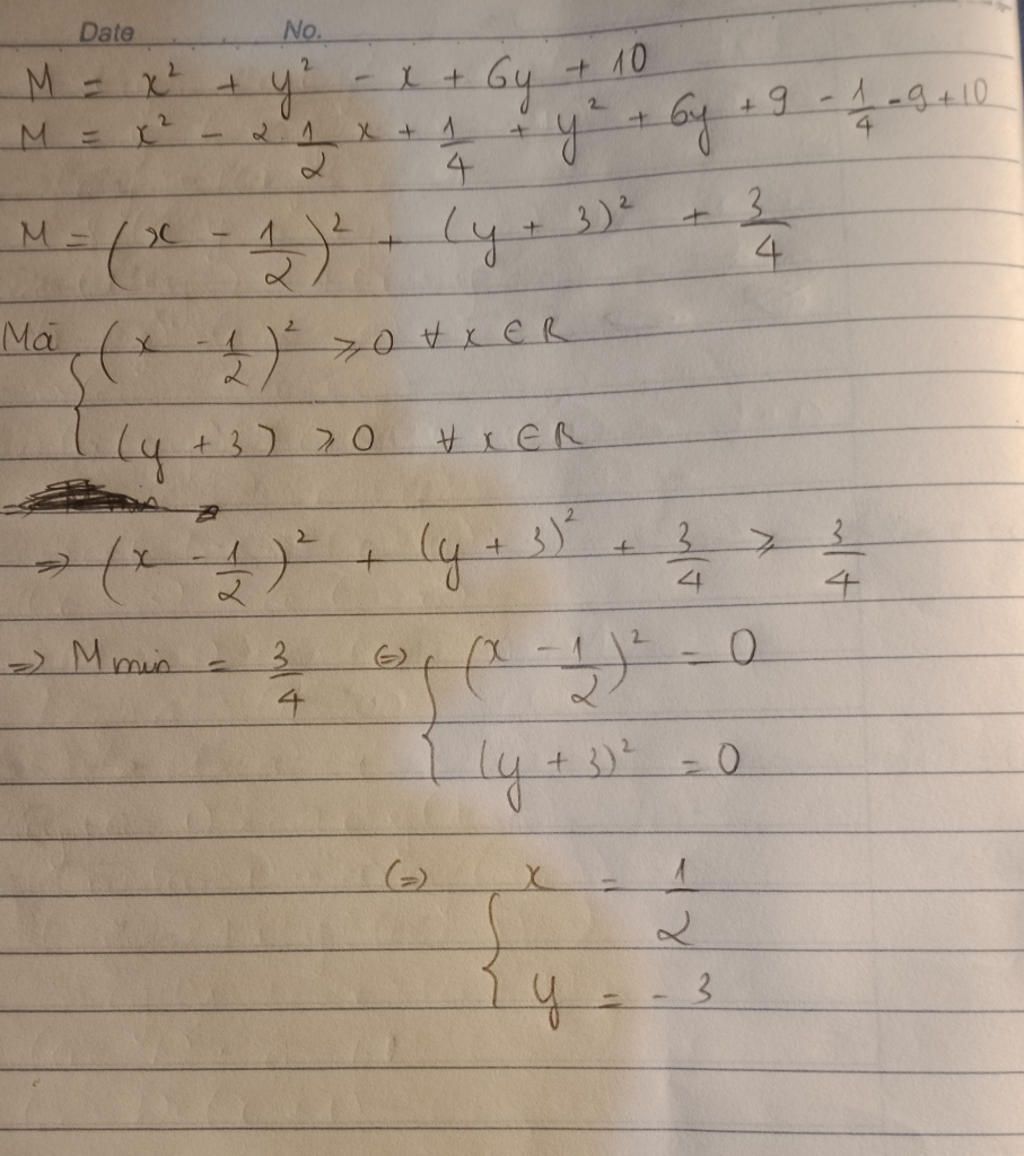 Date No.
M = x² + y² - x + 6y + 10
M = x² - 2 1/2 x + 1/4 + y² + 6y + 9 - 1/4 - 9 + 10
M = (x - 1/2)² + (y + 3)² + 3/4
Mà { (x - 1/2)² ⩾ 0 ∀ x ∈ R
(y + 3) ⩾ 0 ∀ x ∈ R
=> (x - 1/2)² + (y + 3)² + 3/4 ⩾ 3/4
=> M min = 3/4 (=) { (x - 1/2)² = 0
(y + 3)² = 0
(=) { x = 1/2
y = - 3